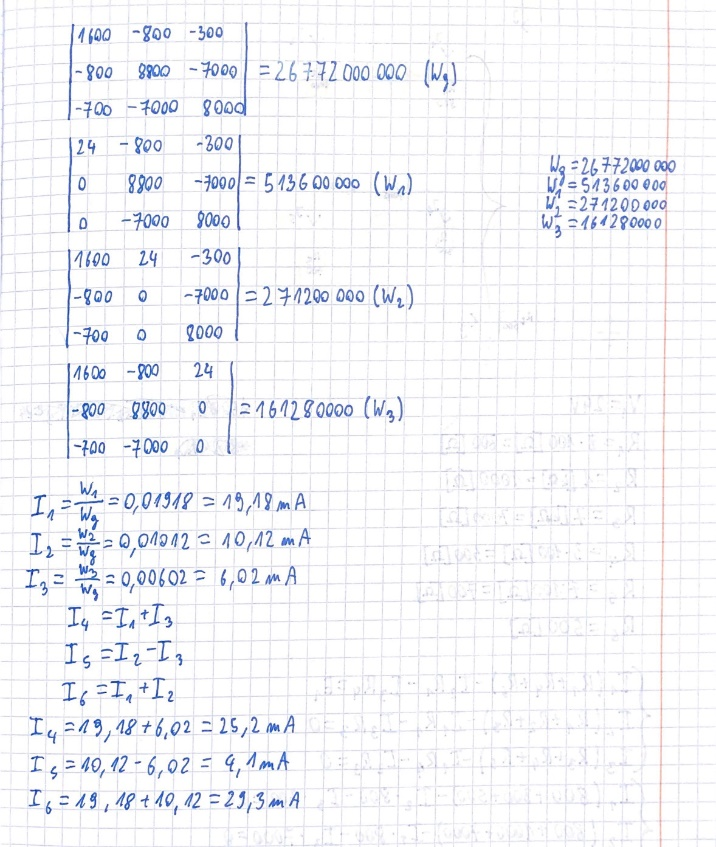 |1600 -800 -300|
|-800 8800 -7000| = 26772000000 (Wg)
|-700 -7000 8000|
|24 -800 -300|
|0 8800 -7000| = 513600000 (W₁)
|0 -7000 8000|
Wg = 26772000000
W₁ = 513600000
W₂ = 271200000
W₃ = 161280000
|1600 24 -300|
|-800 0 -7000| = 271200000 (W₂)
|-700 0 8000|
|1600 -800 24|
|-800 8800 0| = 161280000 (W₃)
|-700 -7000 0|
I₁ = W₁/Wg = 0,01918 = 19,18 mA
I₂ = W₂/Wg = 0,01012 = 10,12 mA
I₃ = W₃/Wg = 0,00602 = 6,02 mA
I₄ = I₁ + I₃
I₅ = I₂ - I₃
I₆ = I₁ + I₂
I₄ = 19,18 + 6,02 = 25,2 mA
I₅ = 10,12 - 6,02 = 4,1 mA
I₆ = 19,18 + 10,12 = 29,3 mA